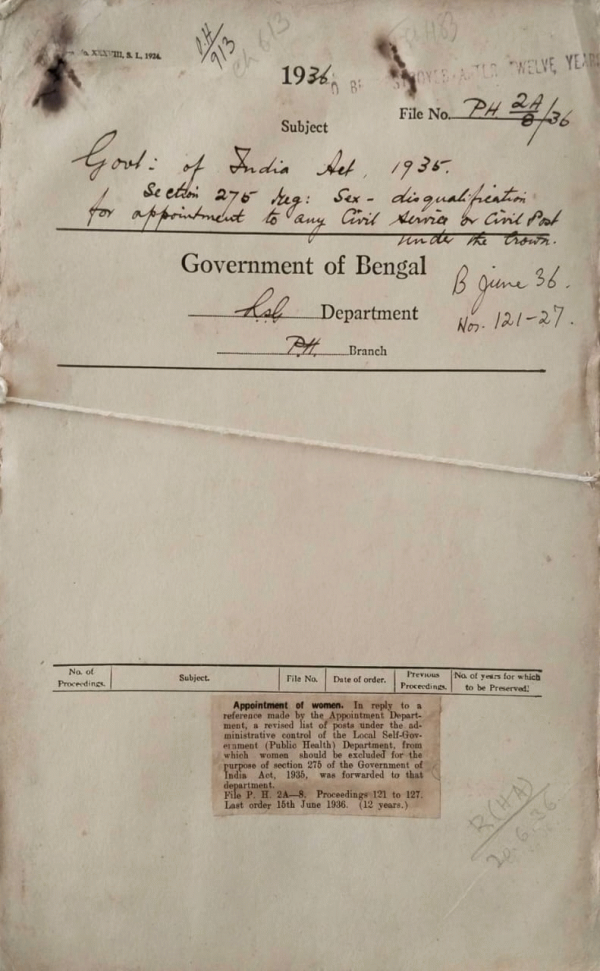 XXXVIII, S. I., 1924.
P.H.
913
ch 613
1936
TWELVE YEARS
File No. PH 2A/8/36
Subject
Govt: of India Act, 1935.
Section 275 reg: Sex-disqualification
for appointment to any Civil Service or Civil Post
under the Crown.
Government of Bengal
B June 36.
Nos. 121-27.
Department
P.H. Branch
No. of Proceedings. Subject. File No. Date of order. Previous Proceedings. No. of years for which to be Preserved.
Appointment of women. In reply to a
reference made by the Appointment Depart-
ment, a revised list of posts under the ad-
ministrative control of the Local Self-Gov-
ernment (Public Health) Department, from
which women should be excluded for the
purpose of section 275 of the Government of
India Act, 1935, was forwarded to that
department.
File P. H. 2A—8. Proceedings 121 to 127.
Last order 15th June 1936. (12 years.)
R(HA)
20.6.36